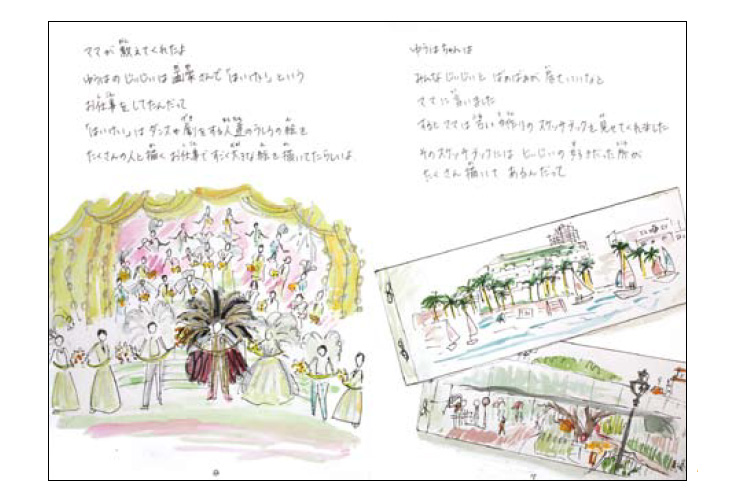 ママが教えてくれたよ
ゆうはのじいじいは さんで「はいけい」という
お仕事をしてたんだって
「はいけい」はダンスや劇をする人達のうしろの絵を
たくさんの人と描くお仕事ですごく大きな絵を描いてたらしいよ
ゆうはちゃんは
みんなじいじいとばぁばぁが居ていいなと
ママに言いました
するとママは古い手作りのスケッチブックを見せてくれました
そのスケッチブックにはじいじいの好きだった所が
たくさん描いてあるんだって